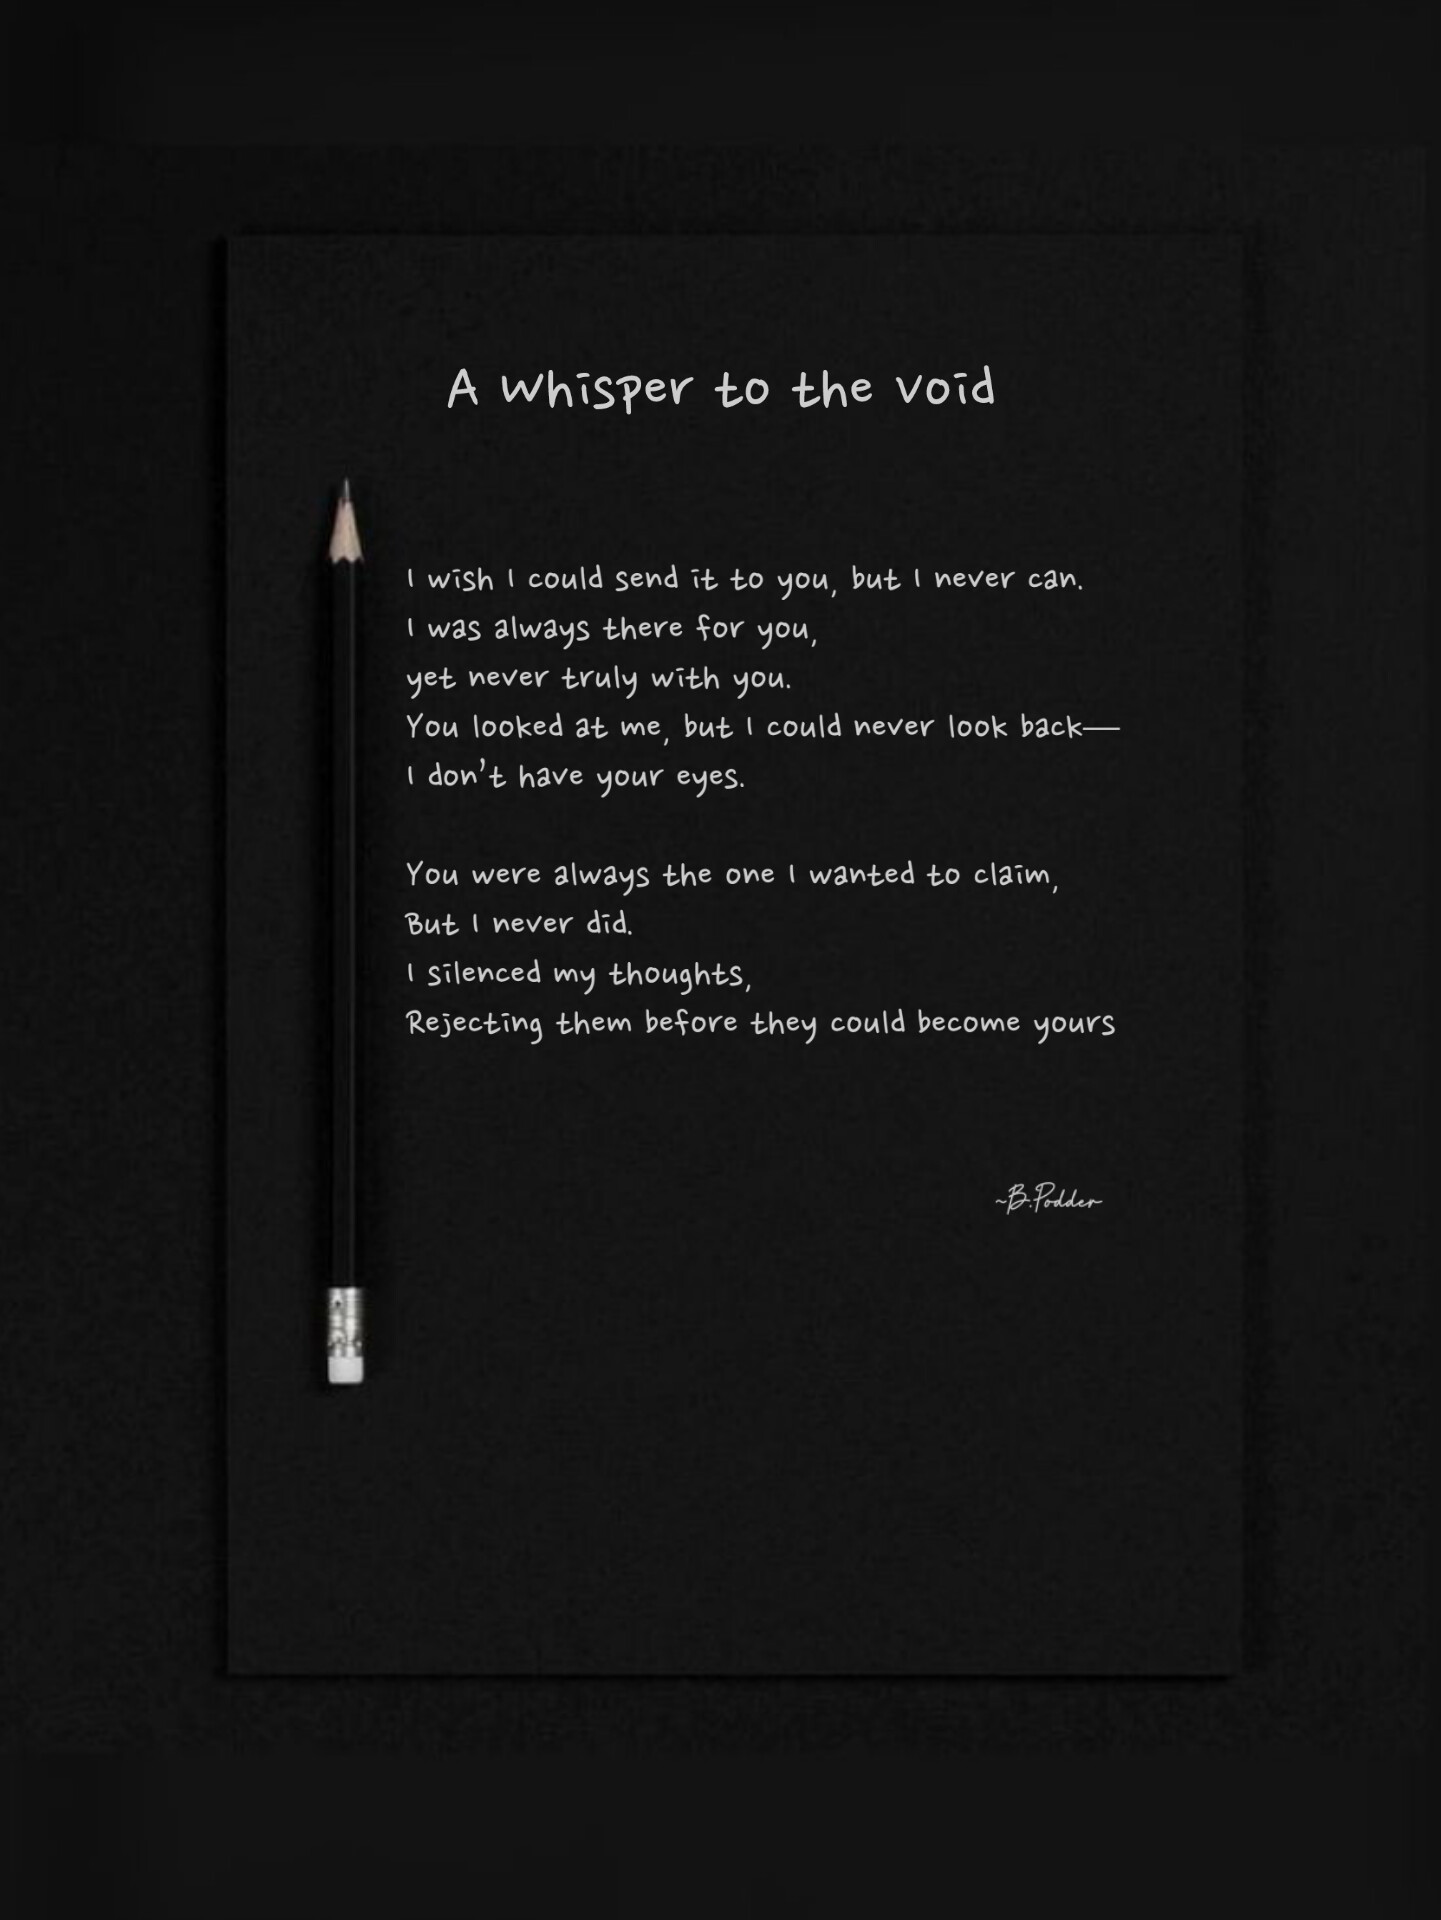 A whisper to the void
I wish I could send it to you, but I never can.
I was always there for you,
yet never truly with you.
You looked at me, but I could never look back—
I don't have your eyes.
You were always the one I wanted to claim,
But I never did.
I silenced my thoughts,
Rejecting them before they could become yours
~B.Podder